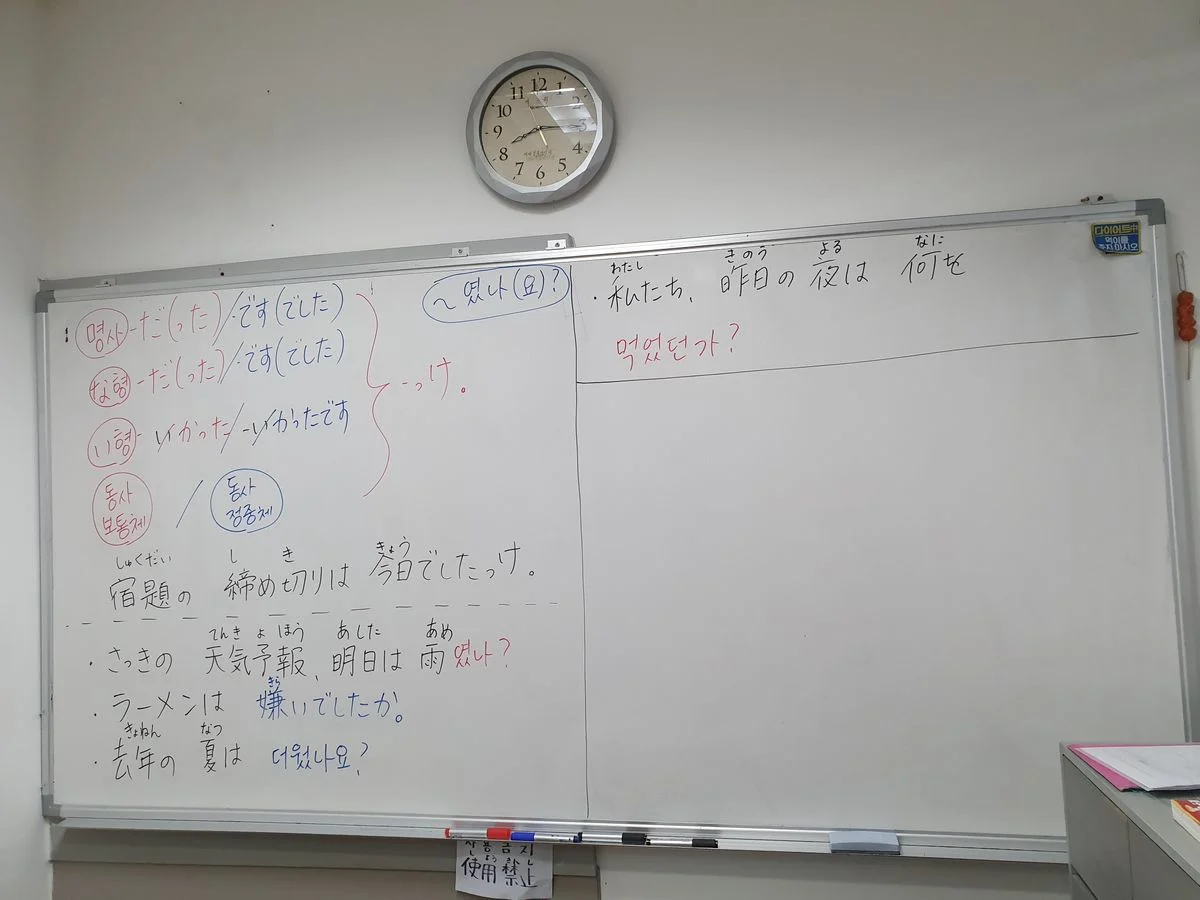 12 1 2 3 4 5 6 7 8 9 10 11
명사-だ(った)/です(でした)
な형-だ(った)/です(でした)
い형-いかった/-いかったです
동사 보통체 / 동사 정중체
-っけ。
~였나(요)?
しゅくだい し き きょう
宿題の 締め切りは 今日でしたっけ。
てんき よ ほう あした あめ
・さっきの 天気予報、明日は 雨 였나?
きら
・ラーメンは 嫌いでしたか。
きょねん なつ
・去年の 夏は 더웠나요?
わたし きのう よる なに
・私たち、昨日の 夜は 何を
먹었던가?
다이어트中
먹이를
주지 마시오
사용금지
しよう きんし
使用禁止